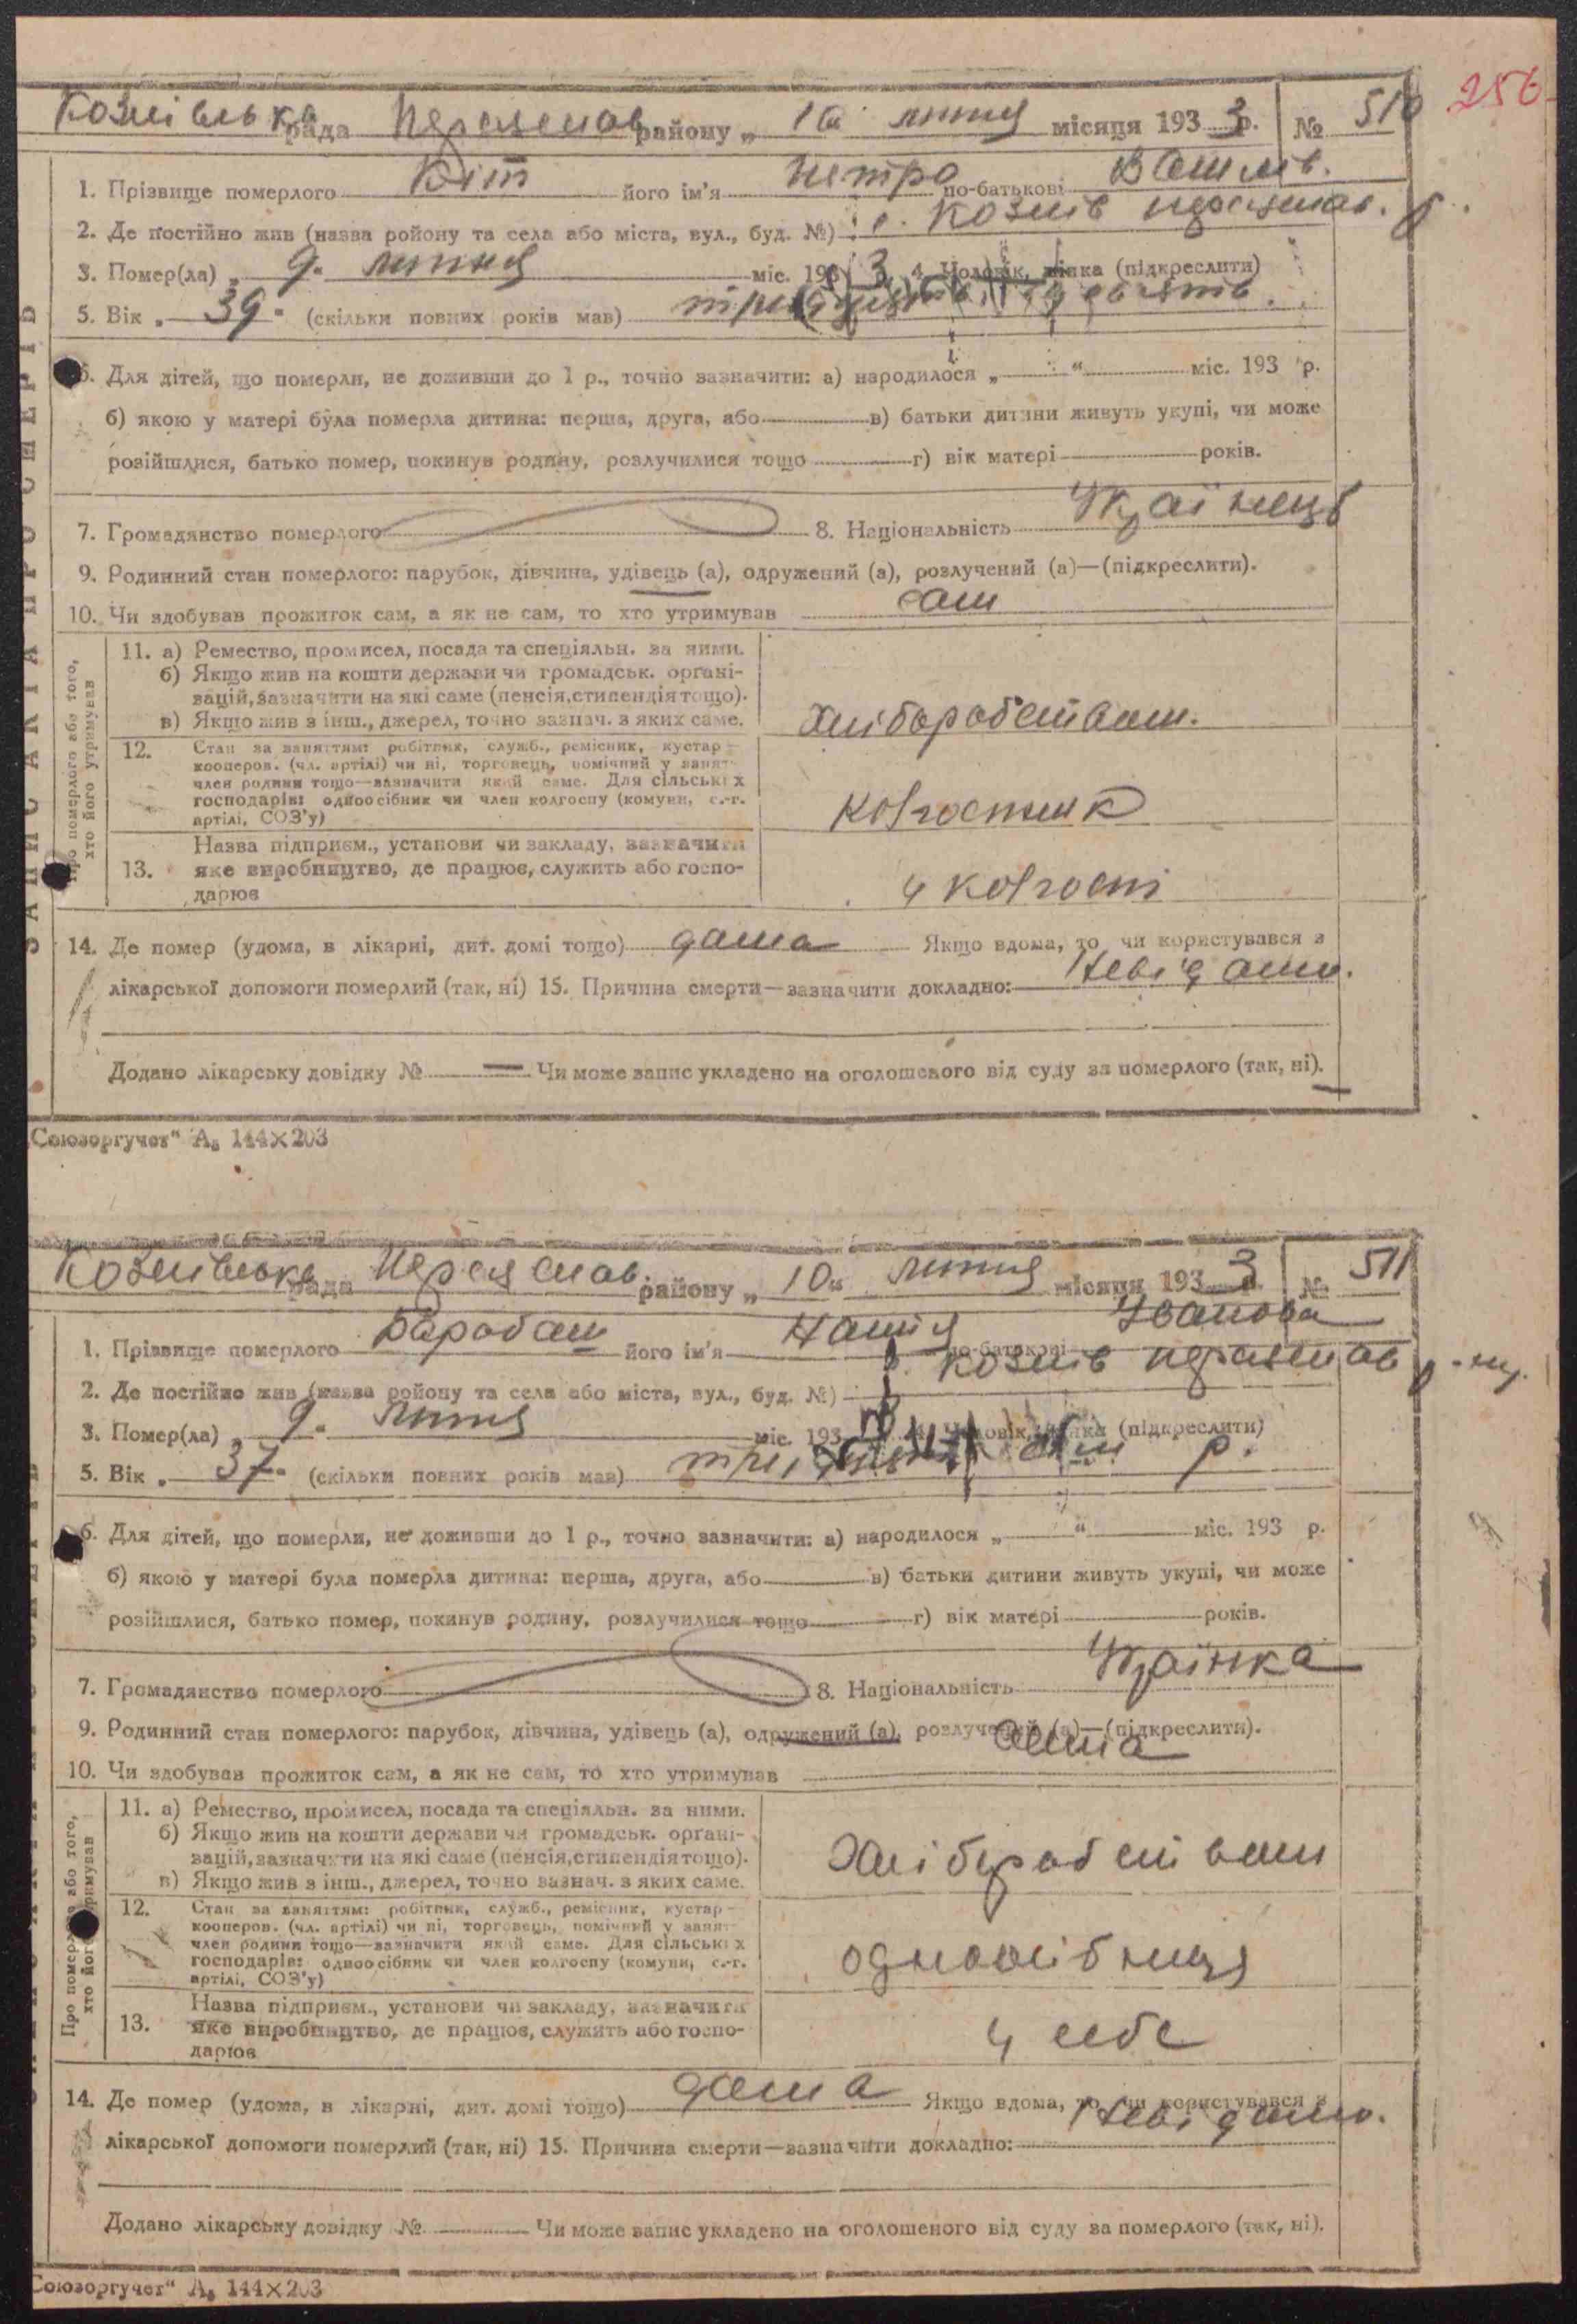 256
Козлівська рада Переяслав. району „ 10 " липня місяця 193 3 р. № 510
1. Прізвище померлого Кіт його ім'я Петро по-батькові Васильів.
2. Де постійно жив (назва ройону та села або міста, вул., буд. №) с. Козлів переяслав. р.
3. Помер(ла) „ 9 " липня міс. 193 3 4. Чоловік, жінка (підкреслити)
5. Вік „ 39 " (скільки повних років мав) тридцять девять.
6. Для дітей, що померли, не доживши до 1 р., точно зазначити: а) народилося „ “ міс. 193 р.
б) якою у матері була померла дитина: перша, друга, або в) батьки дитини живуть укупі, чи може
розійшлися, батько помер, покинув родину, розлучилися тощо г) вік матері років.
7. Громадянство померлого 8. Національність Українець
9. Родинний стан померлого: парубок, дівчина, удівець (а), одружений (а), розлучений (а)—(підкреслити).
10. Чи здобував прожиток сам, а як не сам, то хто утримував сам
ЗАПИС АКТА ПРО СМЕРТЬ
Про померлого або того, хто його утримував
11. а) Ремество, промисел, посада та спеціяльн. за ними.
б) Якщо жив на кошти держави чи громадськ. органі-
зацій, зазначити на які саме (пенсія, стипендія тощо).
в) Якщо жив з інш., джерел, точно зазнач. з яких саме.
Хліборобством.
12. Стан за заняттям: робітник, служб., ремісник, кустар-
кооперов. (чл. артілі) чи ні, торговець, помічний у занят-
член родини тощо—зазначити який саме. Для сільських
господарів: одноосібник чи член колгоспу (комуни, с.-г.
артілі, СОЗ'у)
Колгоспник
Назва підприєм., установи чи закладу, зазначити
13. яке виробництво, де працює, служить або госпо-
дарює
у колгоспі
14. Де помер (удома, в лікарні, дит. домі тощо) дома Якщо вдома, то чи користувався з
лікарської допомоги померлий (так, ні) 15. Причина смерти—зазначити докладно: Невідомо.
Додано лікарську довідку № — Чи може запис укладено на оголошеного від суду за померлого (так, ні).
Союзоргучет“ А₅ 144×203
Козлівська рада Переяслав. району „ 10 " липня місяця 193 3 р. № 511
1. Прізвище померлого Барабаш його ім'я по-батькові Іванова
2. Де постійно жив (назва ройону та села або міста, вул., буд. №) с. Козлів переяслав р-ну.
3. Помер(ла) „ 9 " липня міс. 193 4. Чоловік, жінка (підкреслити)
5. Вік „ 37 " (скільки повних років мав) тридцять сім р.
6. Для дітей, що померли, не доживши до 1 р., точно зазначити: а) народилося „ “ міс. 193 р.
б) якою у матері була померла дитина: перша, друга, або в) батьки дитини живуть укупі, чи може
розійшлися, батько помер, покинув родину, розлучилися тощо г) вік матері років.
7. Громадянство померлого 8. Національність Українка
9. Родинний стан померлого: парубок, дівчина, удівець (а), одружений (а), розлучений (а)—(підкреслити).
10. Чи здобував прожиток сам, а як не сам, то хто утримував сама
Про померлого або того, хто його утримував
11. а) Ремество, промисел, посада та спеціяльн. за ними.
б) Якщо жив на кошти держави чи громадськ. органі-
зацій, зазначити на які саме (пенсія, стипендія тощо).
в) Якщо жив з інш., джерел, точно зазнач. з яких саме.
Хліборобством
12. Стан за заняттям: робітник, служб., ремісник, кустар-
кооперов. (чл. артілі) чи ні, торговець, помічний у занят-
член родини тощо—зазначити який саме. Для сільських
господарів: одноосібник чи член колгоспу (комуни, с.-г.
артілі, СОЗ'у)
одноосібниця
Назва підприєм., установи чи закладу, зазначити
13. яке виробництво, де працює, служить або госпо-
дарює
у себе
14. Де помер (удома, в лікарні, дит. домі тощо) дома Якщо вдома, то чи користувався з
лікарської допомоги померлий (так, ні) 15. Причина смерти—зазначити докладно: Невідомо.
Додано лікарську довідку № Чи може запис укладено на оголошеного від суду за померлого (так, ні).
Союзоргучет“ А₅ 144×203